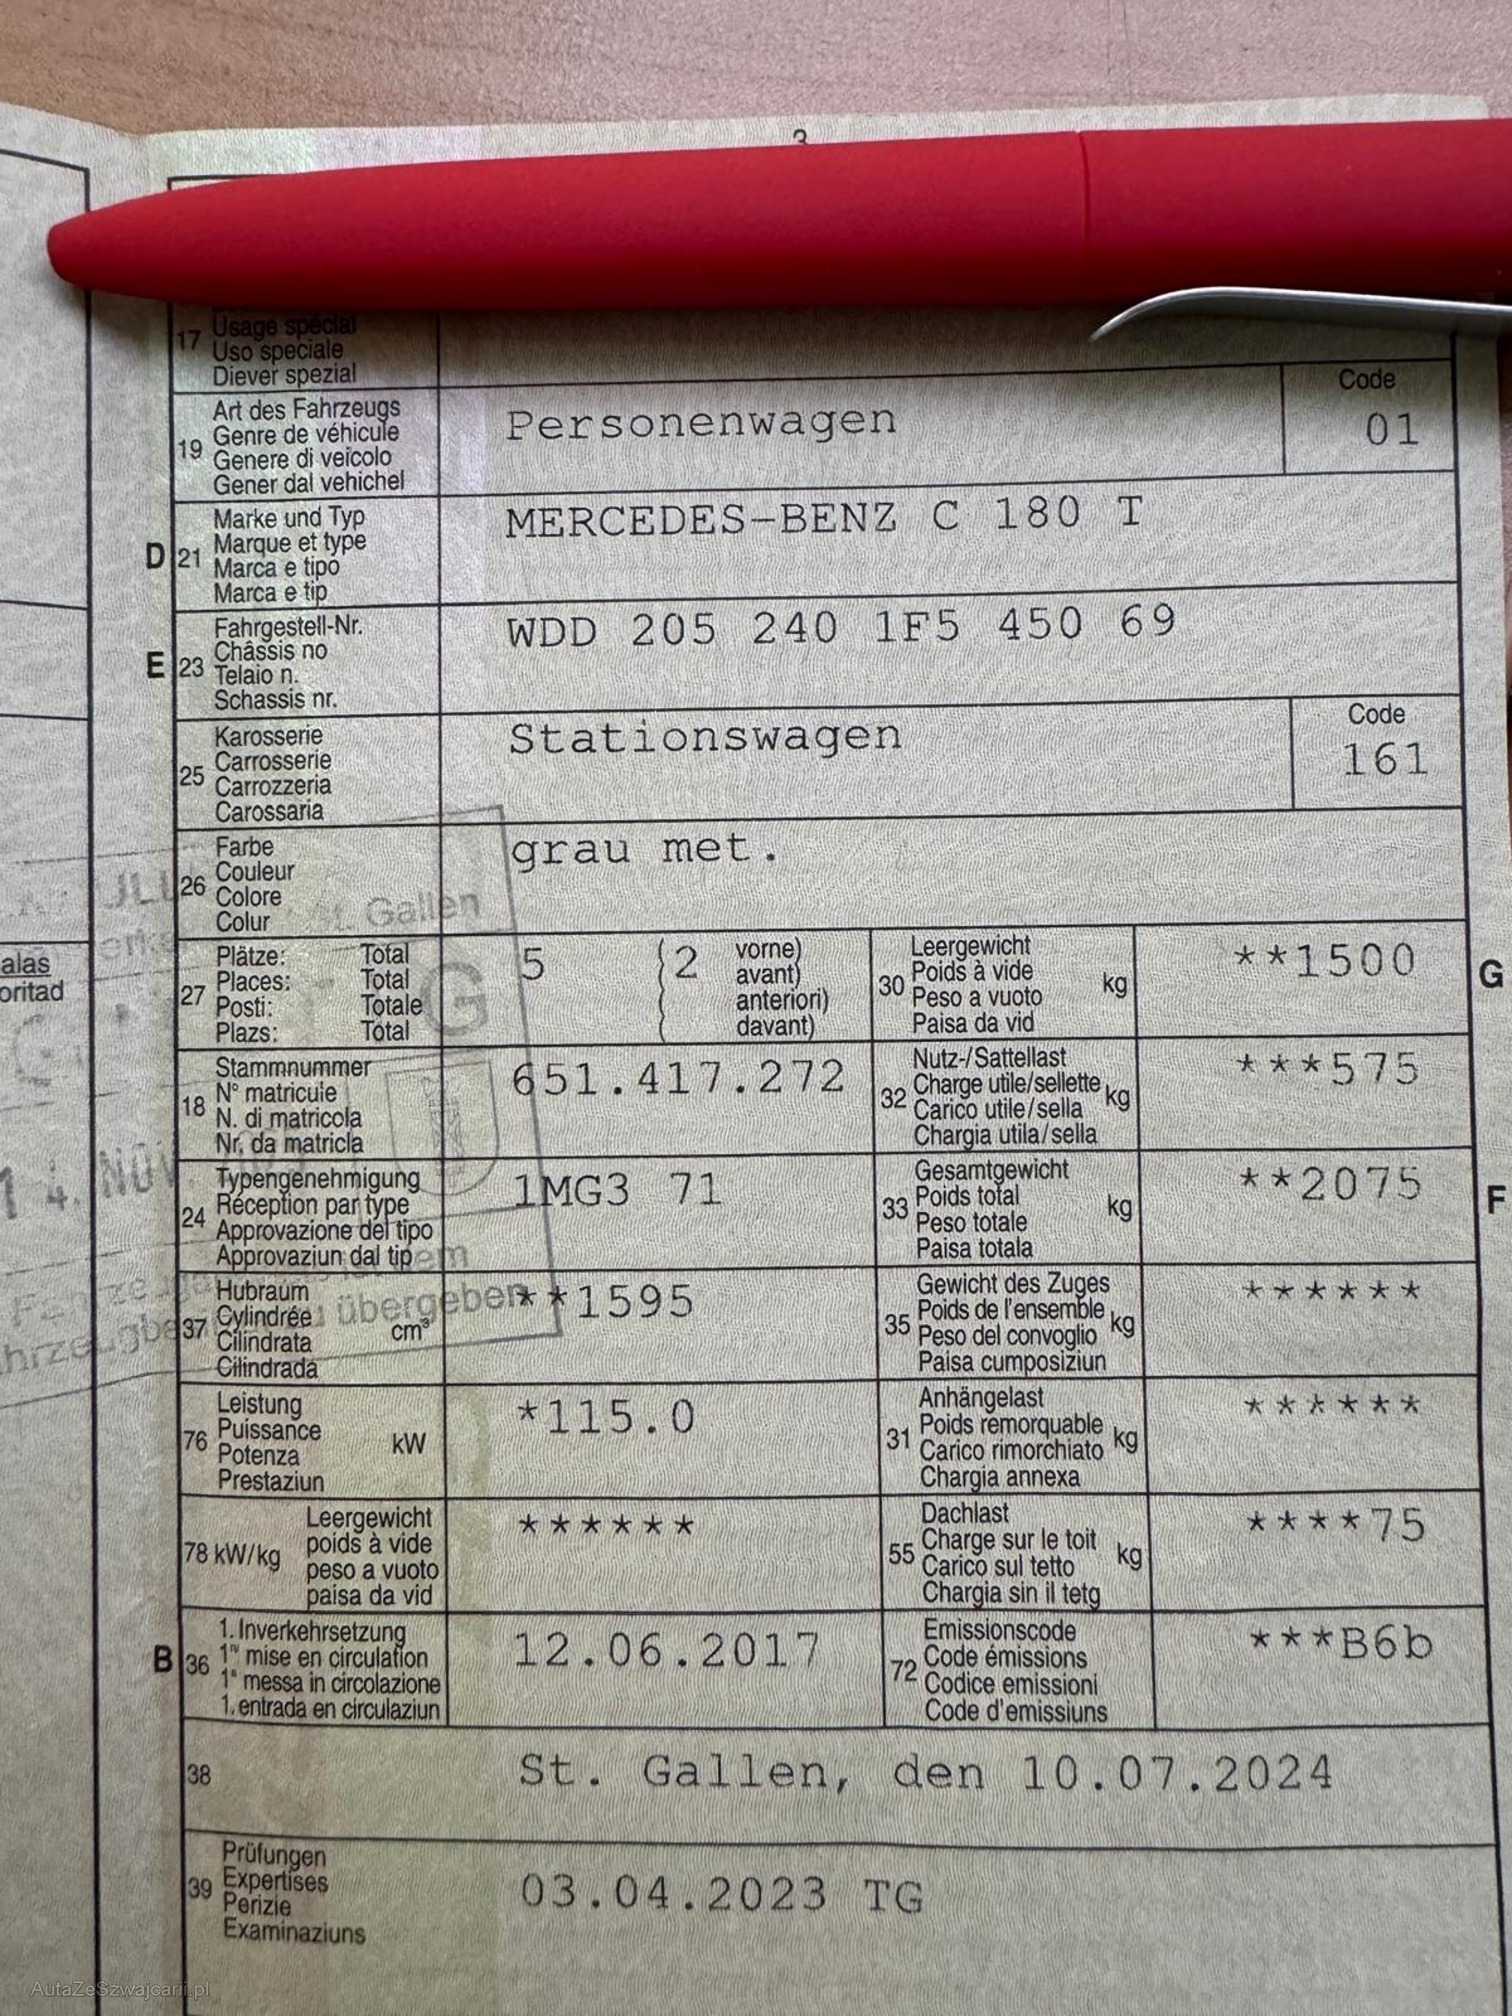 3
17
Usage spécial
Uso speciale
Diever spezial
19
Art des Fahrzeugs
Genre de véhicule
Genere di veicolo
Gener dal vehichel
Personenwagen
Code
01
D
21
Marke und Typ
Marque et type
Marca e tipo
Marca e tip
MERCEDES-BENZ C 180 T
E
23
Fahrgestell-Nr.
Châssis no
Telaio n.
Schassis nr.
WDD 205 240 1F5 450 69
25
Karosserie
Carrosserie
Carrozzeria
Carossaria
Stationswagen
Code
161
26
Farbe
Couleur
Colore
Colur
grau met.
St. Gallen
alas
oritad
27
Plätze: Total
Places: Total
Posti: Totale
Plazs: Total
5 (2
vorne)
avant)
anteriori)
davant)
G
30
Leergewicht
Poids à vide
Peso a vuoto
Paisa da vid
kg
**1500
G
18
Stammnummer
N° matricule
N. di matricola
Nr. da matricla
651.417.272
32
Nutz-/Sattellast
Charge utile/sellette
Carico utile/sella
Chargia utila/sella
kg
***575
14. NOV.
24
Typengenehmigung
Réception par type
Approvazione del tipo
Approvaziun dal tip
1MG3 71
33
Gesamtgewicht
Poids total
Peso totale
Paisa totala
kg
**2075
F
37
Hubraum
Cylindrée
Cilindrata
Cilindrada
cm³
übergeben
**1595
35
Gewicht des Zuges
Poids de l'ensemble
Peso del convoglio
Paisa cumposiziun
kg
******
76
Leistung
Puissance
Potenza
Prestaziun
kW
*115.0
31
Anhängelast
Poids remorquable
Carico rimorchiato
Chargia annexa
kg
******
78 kW/kg
Leergewicht
poids à vide
peso a vuoto
paisa da vid
******
55
Dachlast
Charge sur le toit
Carico sul tetto
Chargia sin il tetg
kg
****75
B
36
1. Inverkehrsetzung
1re mise en circulation
1a messa in circolazione
1. entrada en circulaziun
12.06.2017
72
Emissionscode
Code émissions
Codice emissioni
Code d'emissiuns
***B6b
38
St. Gallen, den 10.07.2024
39
Prüfungen
Expertises
Perizie
Examinaziuns
03.04.2023 TG
AutaZeSzwajcarii.pl